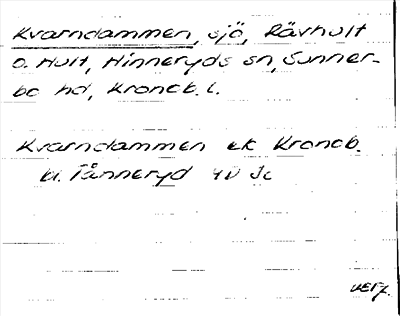 Kvarndammen, sjö, Rävhult
o. Hult, Hinneryds sn, Sunner-
bo hd, Kronob. l.
Kvarndammen ek Kronob.
bl. Tånneryd 4D Sc